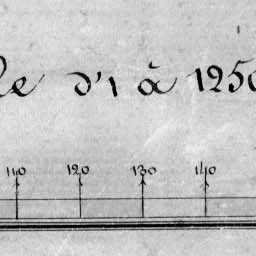 le d'1 à 1250
110 120 130 140